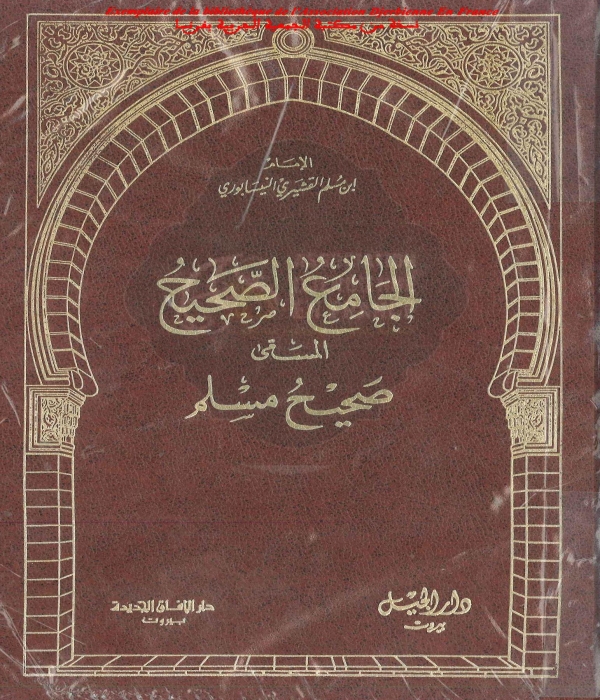 Exemplaire de la bibliothèque de l'Association Tyrienne En France
نسخة من مكتبة الجمعية الصورية بفرنسا
الإمام
ابن مسلم القشيري النيسابوري
الجَامِعُ الصَّحِيحُ
المسمّى
صَحِيْحُ مُسْلِم
دار الجيل
بيروت
دار الآفاق الجديدة
بيروت